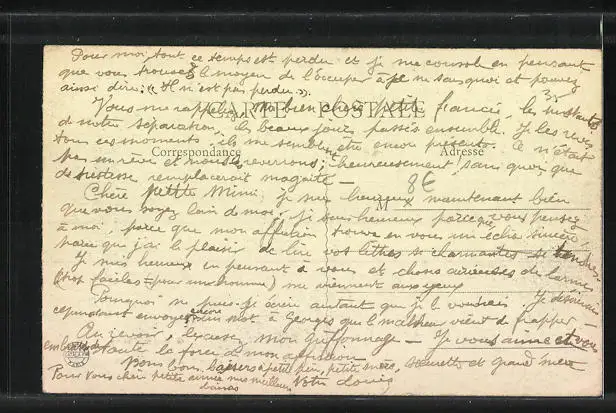 Pour moi, tout ce temps est perdu et je me console en pensant
que vous trouvez le moyen de l'occuper à je ne sais quoi et pouvez
ainsi dire: « Il n'est pas perdu ».
Vous me rappelez, ma bien chère petite fiancée, les instants
CARTE POSTALE
de notre séparation, les beaux jours passés ensemble. Je les revis
tous ces moments, ils me semblent être encore présents. Ce n'était
Correspondance
Adresse
pas un rêve et nous les reverrons, heureusement, sans quoi que
de tristesse remplacerait ma gaîté —
8€
M
Chère petite Mimi, je suis heureux maintenant bien
que vous soyez loin de moi, je suis heureux parce que vous pensez
à moi, parce que mon affection trouve en vous un écho sincère,
parce que j'ai le plaisir de lire vos lettres si charmantes si tendres
Je suis heureux en pensant à vous et chose curieuse des larmes
(trop faciles pour un homme) me viennent aux yeux
Pourquoi ne puis-je écrire autant que je le voudrais. Je désire
cependant envoyer encore un mot à Georges que le malheur vient de frapper —
Au revoir, excusez mon griffonnage — Je vous aime et vous
embrasse de toute la force de mon affection
Bons baisers à petit père, petite mère, sœurette et grand'mère
Pour vous chère petite aimée mes meilleurs baisers
Votre Louis